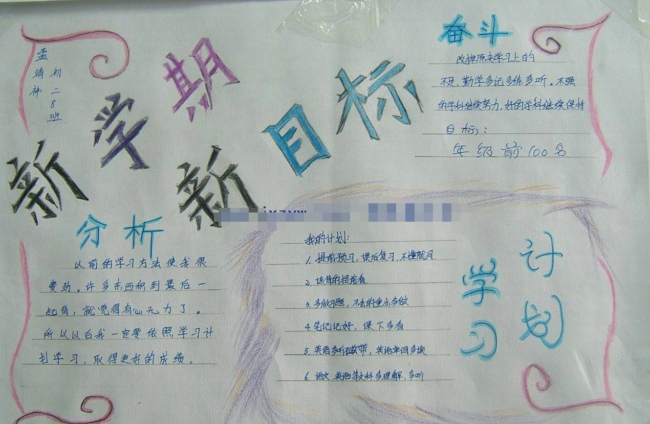 新学期
新目标
初二8班
奋斗
改掉历史学习上的
不足,勤学多记多练多听。不强
的学科继续努力,好的学科继续保持
目标:
年级前100名
分析
以前的学习方法使我很
费劲。许多东西积到最后一
起背,就觉得有心无力了。
所以以后我一定要依照学习计
划学习,取得更好的成绩。
学习
计划
我的计划:
1. 提前预习,课后复习,不懂就问
2.
3. 多做习题,不会的重点多做
4. 笔记记好,课下多看
5. 英语多听磁带,英语单词多读
6. 语文 英语等文科多理解,多听